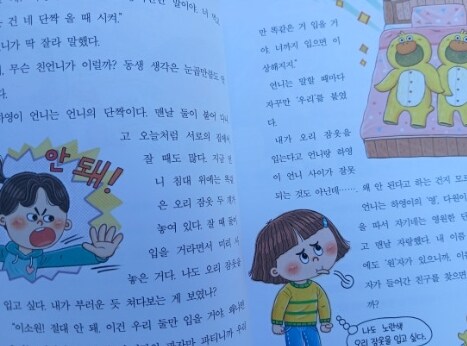 는 건 네 단짝 올 때 시켜."
니가 딱 잘라 말했다.
무슨 친언니가 이럴까? 동생 생각은 눈곱만큼도
다.
하영이 언니는 언니의 단짝이다. 맨날 둘이 붙어
고 오늘처럼 서로의 집에서
잘 때도 많다. 지금
니 침대 위에는
은 오리 잠옷 두
놓여 있다. 잘 때
입을 거라면서 미리
놓은 거다. 나도 오리 잠옷을
입고 싶다. 내가 부러운 듯 쳐다보는 게 보였나?
"이소원! 절대 안 돼. 이건 우리 둘만 입을 거야.
파티니까 우리
안 돼!
만 똑같은 거 입을 거
야. 너까지 입으면 이
상해지지."
언니는 말할 때마다
자꾸만 '우리'를 붙였
다.
내가 오리 잠옷을
입는다고 언니랑 하영
이 언니 사이가 잘못
되는 것도 아닌데……. 왜 안 된다고 하는 건지
언니는 하영이의 '영',
을 따서 자기네는 영원한
고 맨날 자랑했다. 내 이름
에도 '원'자가 있으니까,
자가 들어간 친구를 찾으면
까?
나도 노란색
오리 잠옷을 입고 싶다.